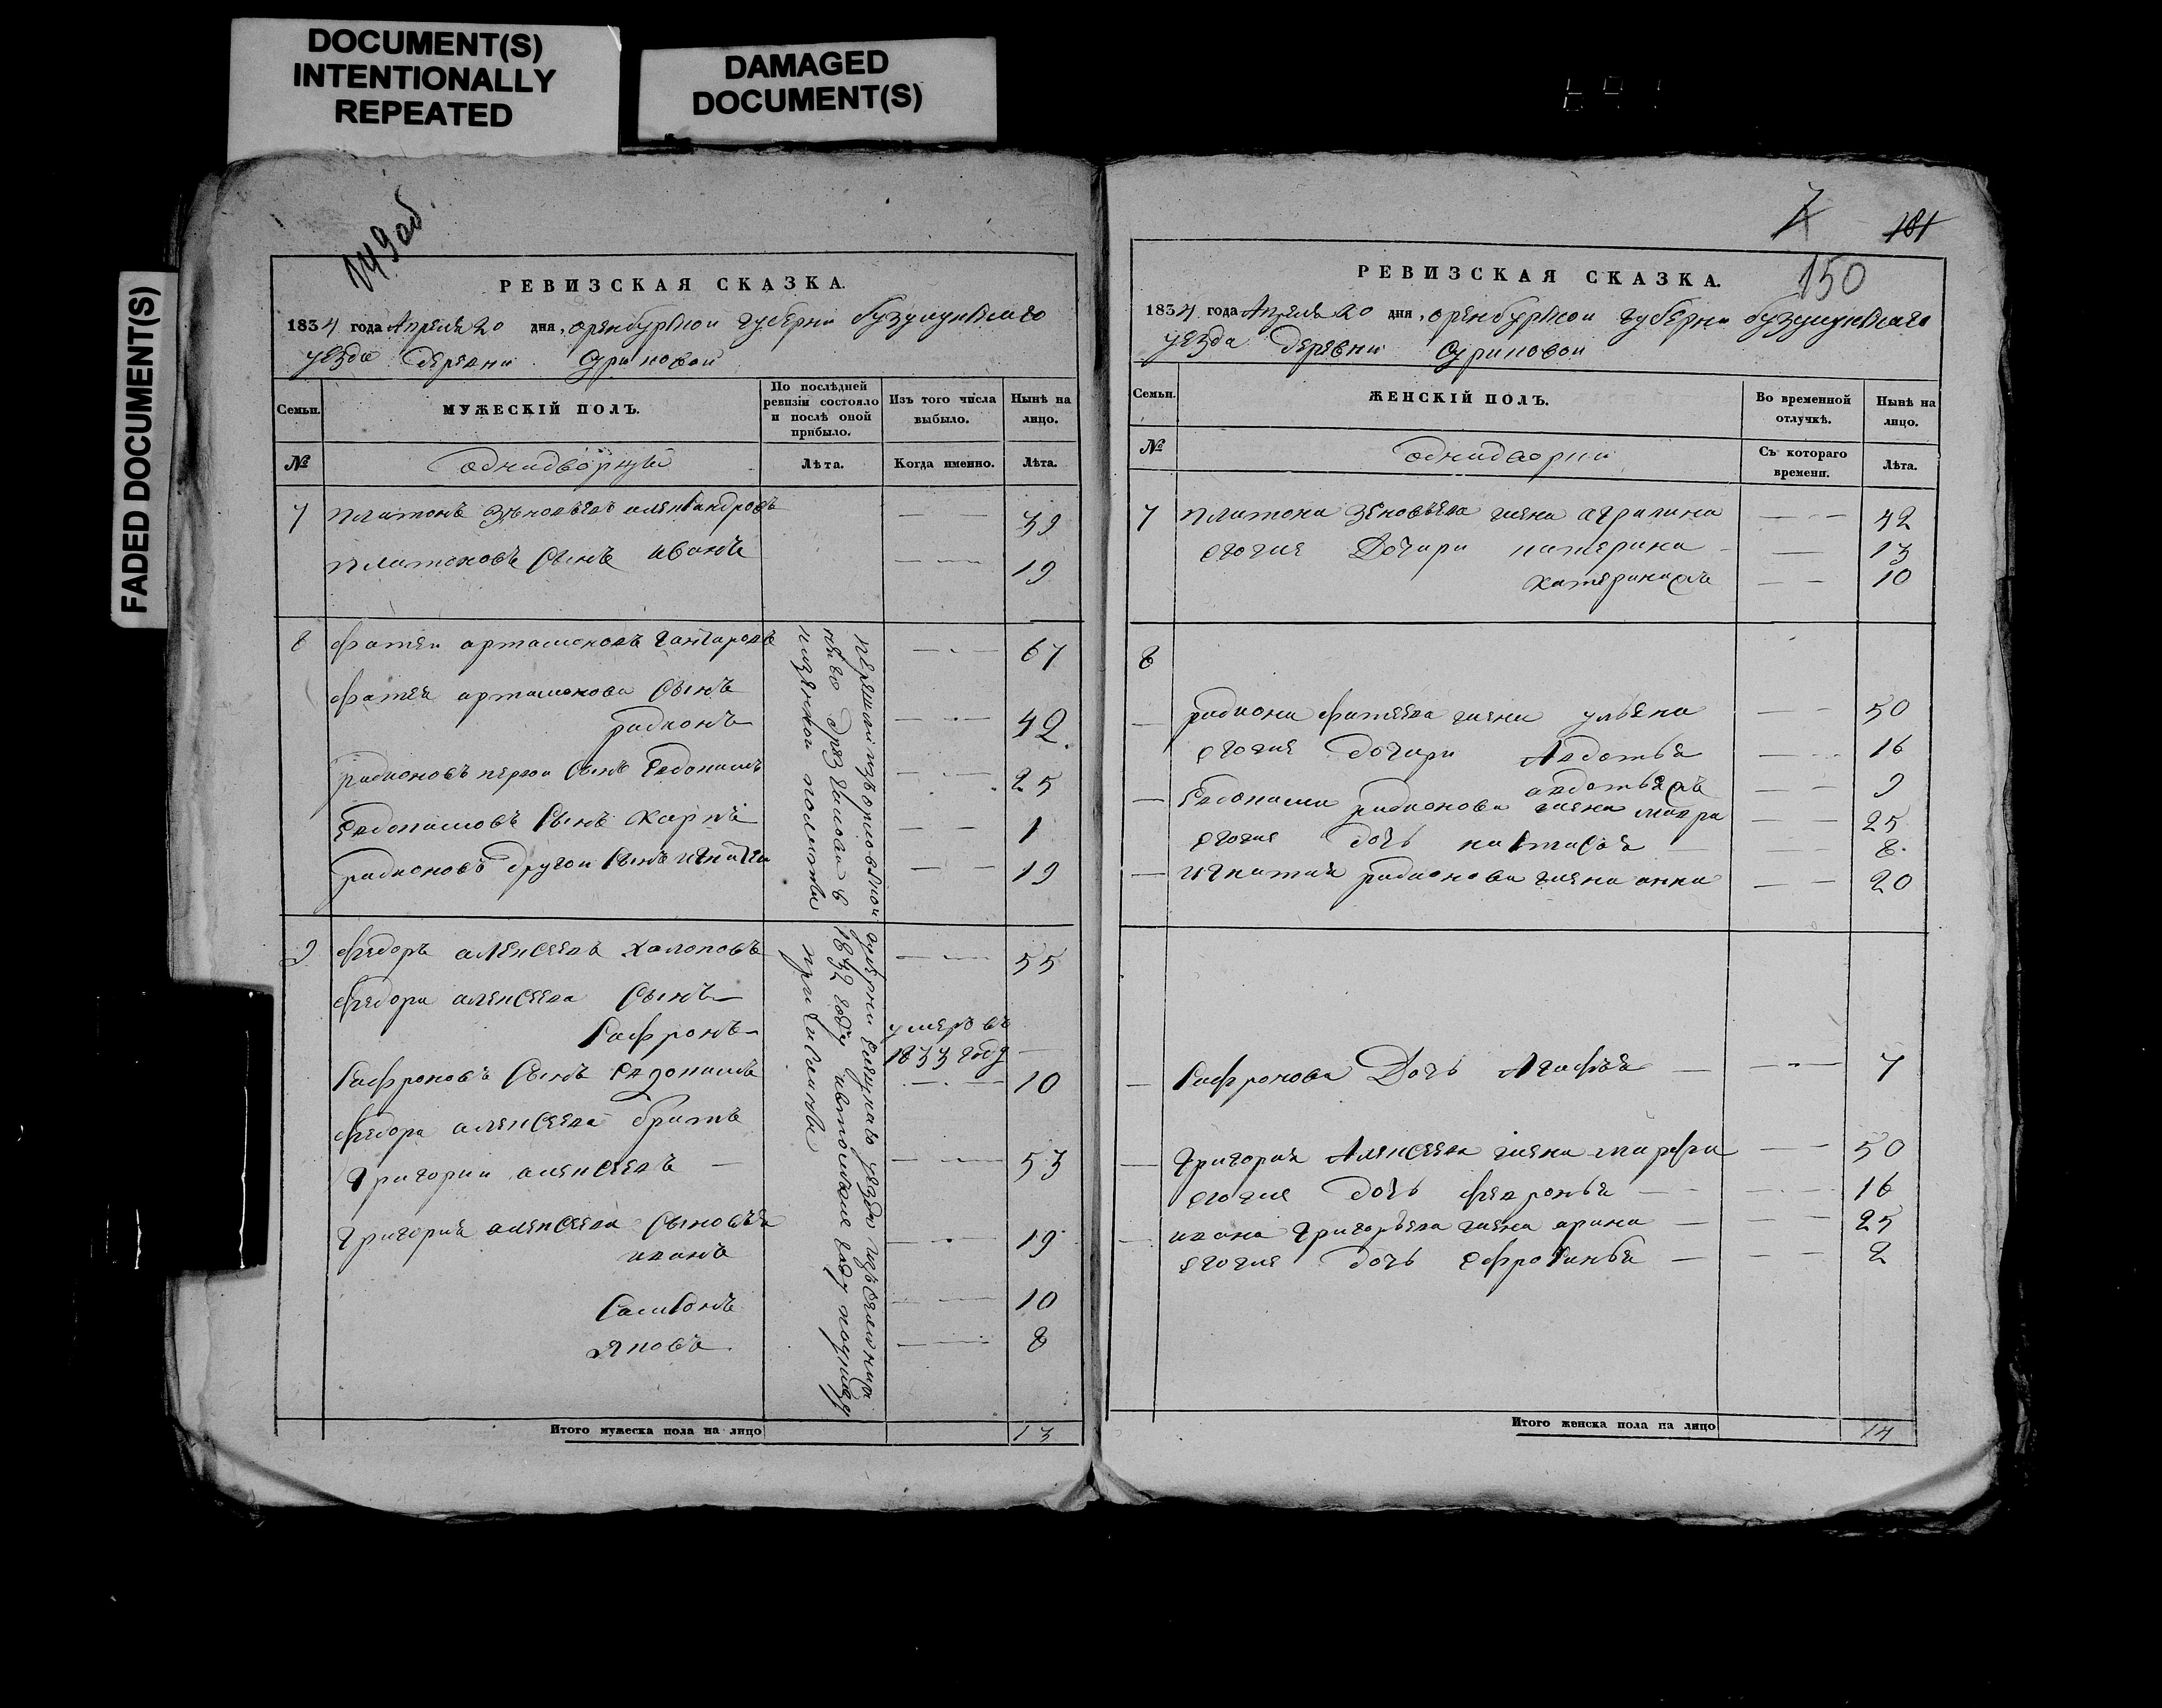 DOCUMENT(S)
INTENTIONALLY
REPEATED
DAMAGED
DOCUMENT(S)
FADED DOCUMENT(S)
149 об
РЕВИЗСКАЯ СКАЗКА.
1834 года Апреля 20 дня, оренбурской губерни бузулукскаго
уезда деревни
Семьи.
МУЖЕСКІЙ ПОЛЪ.
По послѣдней
ревизіи состояло
и послѣ оной
прибыло.
Изъ того числа
выбыло.
Нынѣ на
лицо.
№
однидворцы
Лѣта.
Когда именно.
Лѣта.
7 платонъ александровъ 39
платоновъ сынъ иванъ 19
8 фатей артамоновъ 67
фатея артамонова сынъ
радионъ 42
радионовъ первои сынъ Евдокимъ 25
Евдокимовъ сынъ карпъ 1
радионовъ другои сынъ игнатеи 19
9 федоръ алексеевъ халоповъ 55
федора алексеева сынъ
сафронъ
умеръ въ
1833 году
сафроновъ сынъ евдокимъ 10
федора алексеева братъ
григории алексеевъ 53
григория алексеева сыновья
иванъ 19
самсонъ 10
яковъ 8
1832 году
причислены
Итого мужеска пола на лицо 13
7 181
РЕВИЗСКАЯ СКАЗКА.
150
1834 года Апреля 20 дня, оренбурской губерни бузулукскаго
уезда деревни
Семьи.
ЖЕНСКІЙ ПОЛЪ.
Во временной
отлучкѣ.
Нынѣ на
лицо.
№
Съ котораго
времени.
Лѣта.
7 платона зеновьева жена аграпина 42
егоже дочири катерина 13
катерина 10
8
радиона фатеева жена ульяна 50
егоже дочири Авдотья 16
авдотья 9
Евдокима радионова жена мавра 25
егоже дочь настасья 8
игнатия радионова жена анна 20
сафронова Дочь Агафья 7
григория Алексеева жена марфа 50
егоже дочь февронья 16
ивана григорьева жена арина 25
егоже дочь ефросинья 2
Итого женска пола на лицо 14